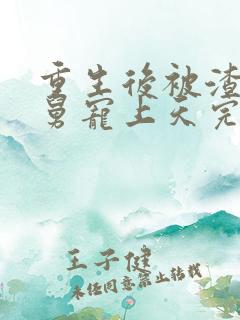 重生後被渣
舅寵上天完
王子健
未经同意禁止转载